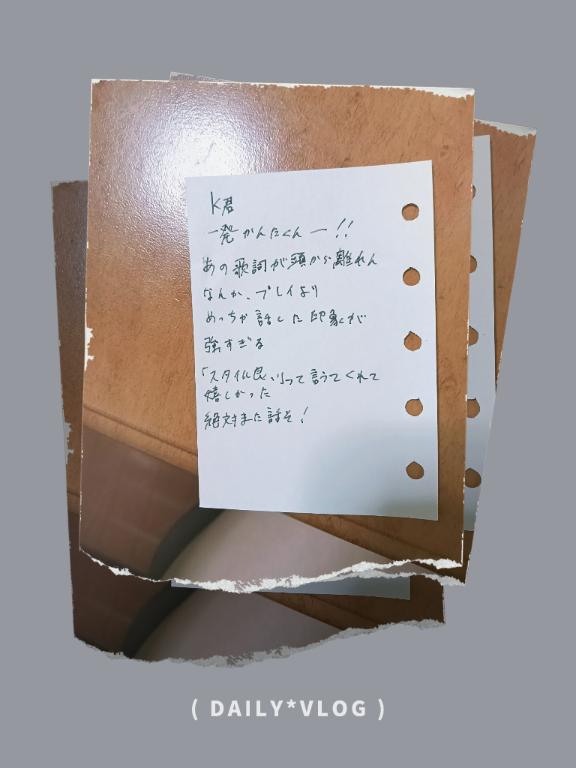 K君
一発かんたくんー!!
あの歌詞が頭から離れん
なんか、プレイより
めっちゃ話した印象が
強すぎる
「スタイル良い」って言うてくれて
嬉しかった
絶対また話そ!
( DAILY*VLOG )